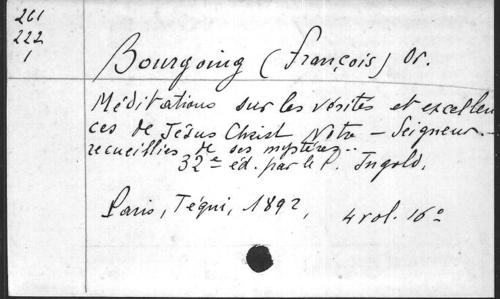 261
222
1
Bourgoing (François) Or.
Méditations sur les vérités et excellen
ces de Jésus Christ Notre - Seigneur -
recueillies de ses mystères..
32e éd. par le P. Ingold,
Paris, Téqui, 1892, 4 vol. 16o